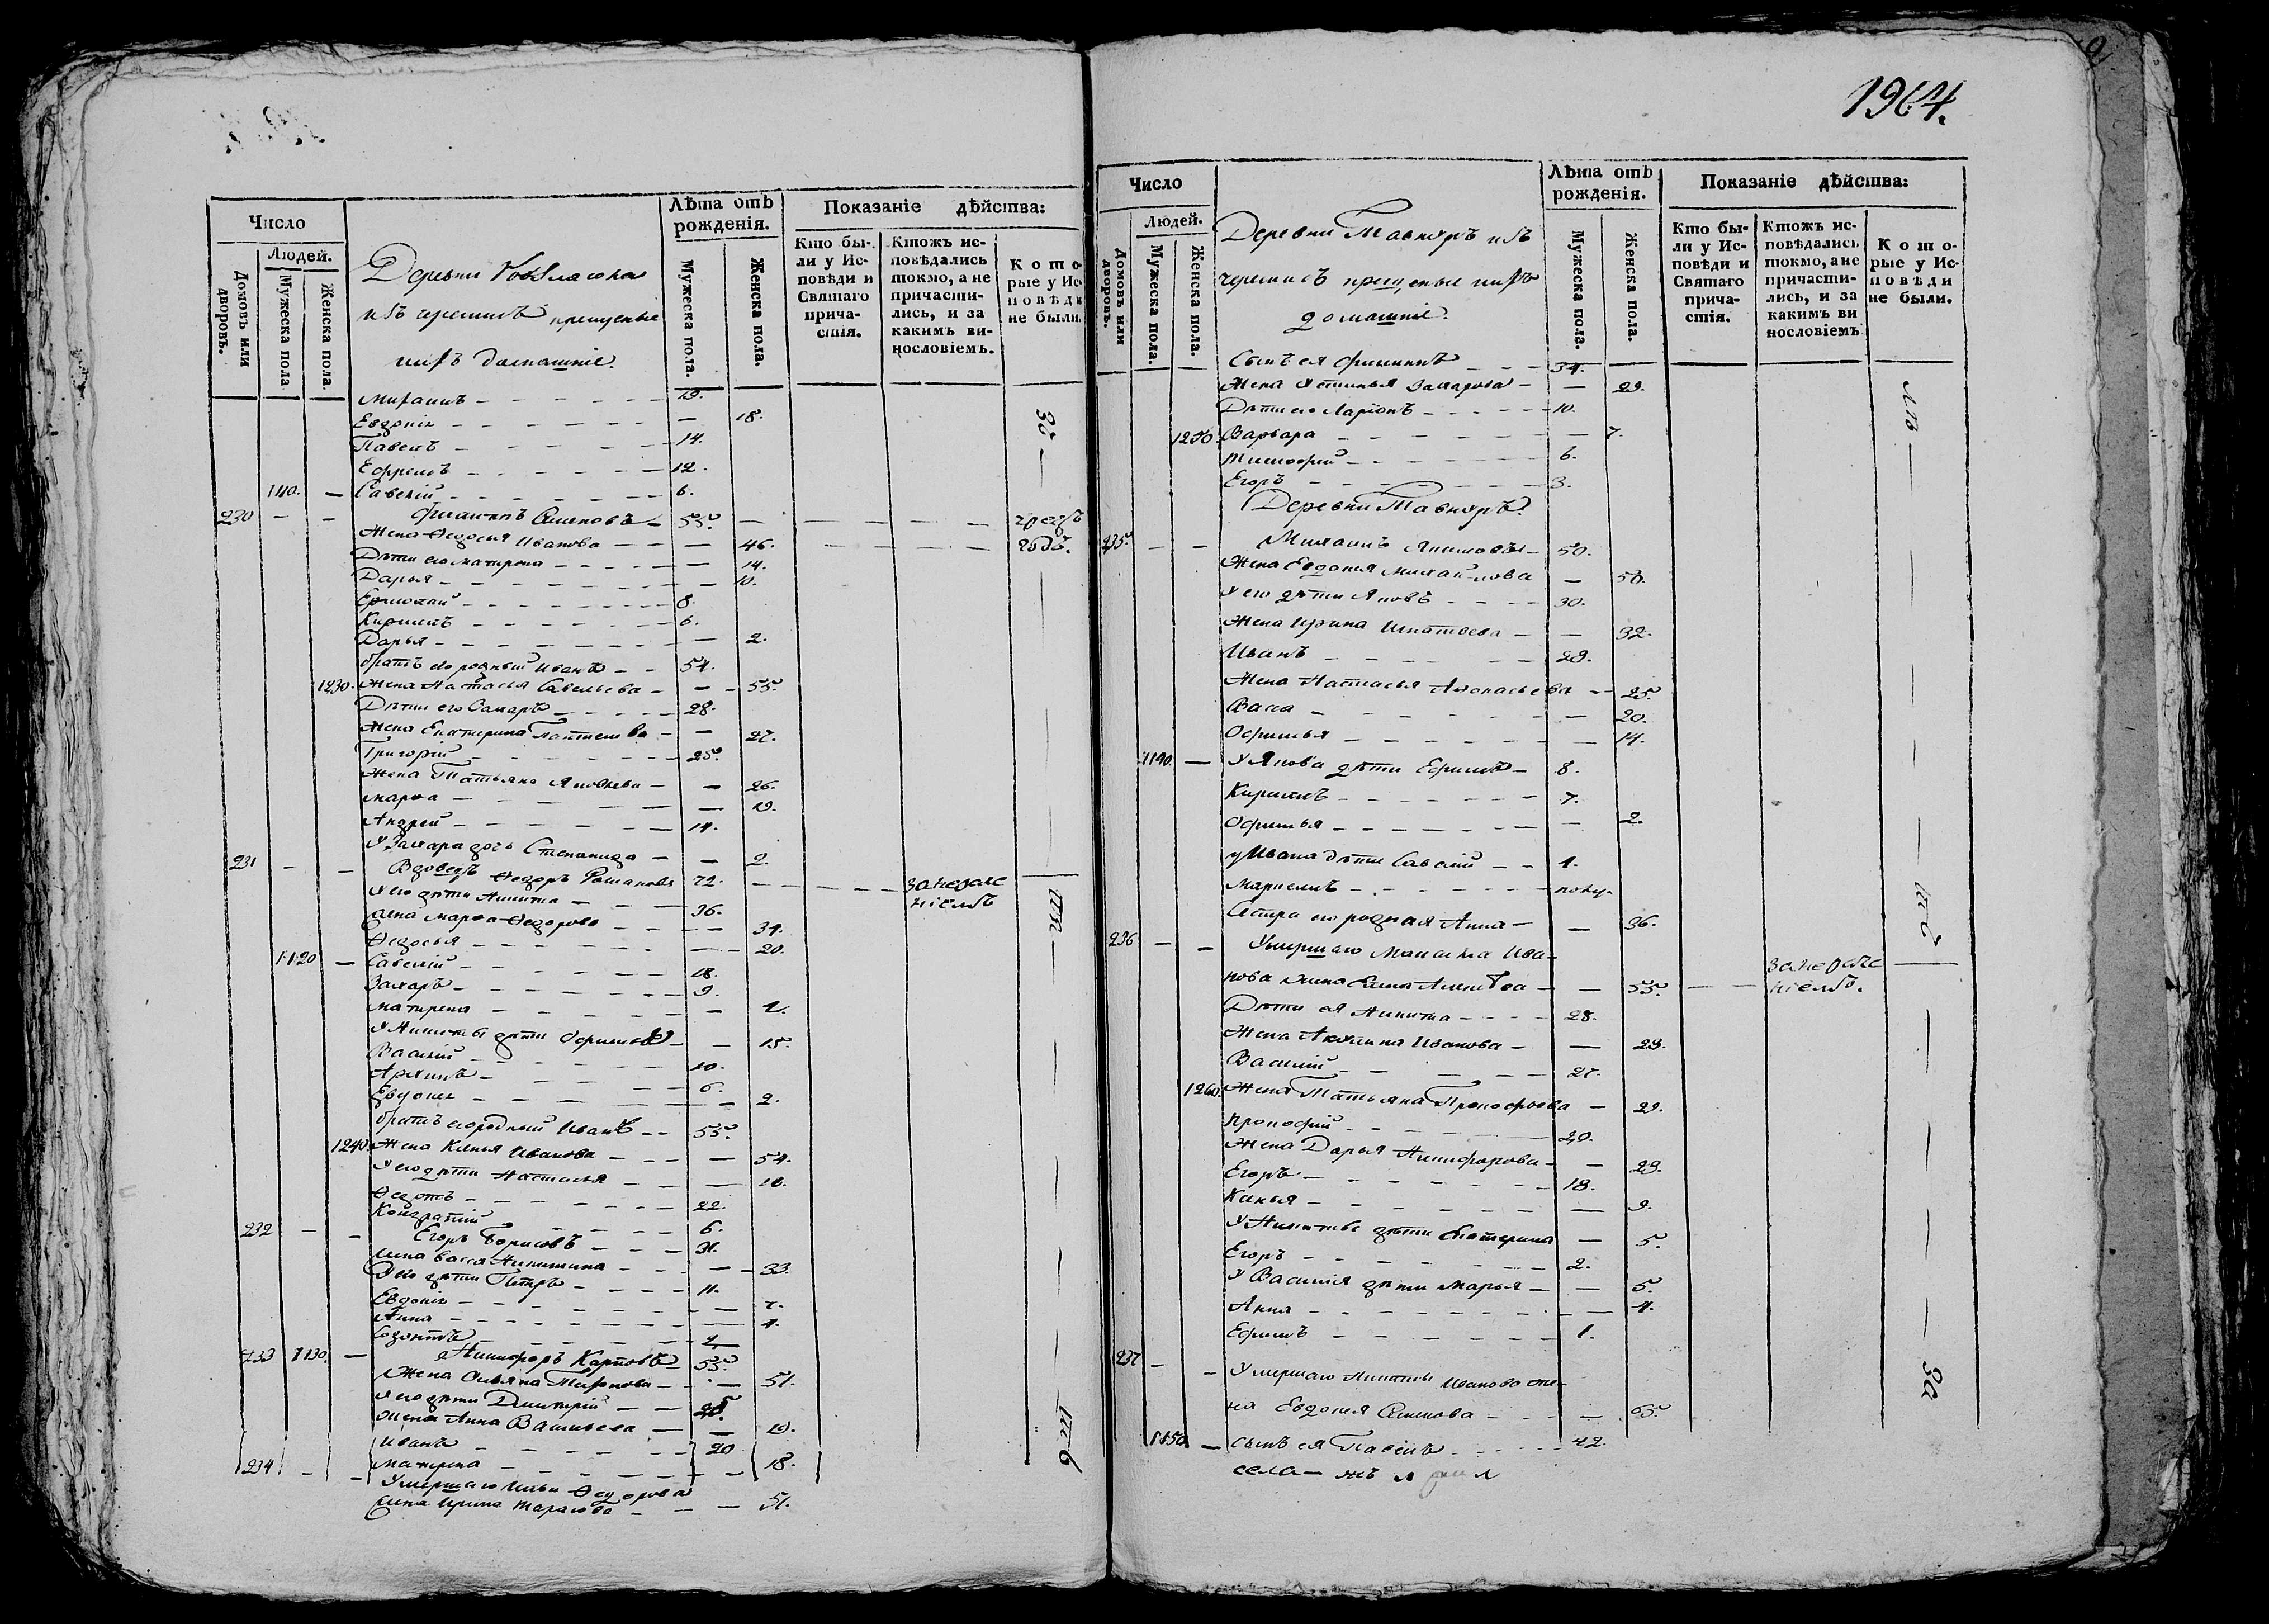 Число
Людей.
Домовъ или дворовъ.
Мужеска пола
Женска пола.
Деревни
изъ черемисъ крещеные
ихъ домашніе.
Лѣта отъ рожденія.
Мужеска пола.
Женска пола.
Показаніе дѣйства:
Кто бы-
ли у Ис-
повѣди и
Святаго
прича-
стія.
Ктожъ ис-
повѣдались
токмо, а не
причасти-
лись, и за
какимъ ви-
нословіемъ.
Кото-
рые у Ис-
повѣди
не были.
19.
Евдокія 18.
Павелъ 14.
Ефремъ 12.
1110. Савелій 6.
230 Филиппъ Семеновъ 55.
Жена Ѳедосья Иванова 46.
Дѣти его Матрена 14.
Дарья 10.
Ермолай 8.
Кирилъ 6.
Дарья 2.
братъ его родный Иванъ 54.
1230. Жена Настасья Савельева 55.
Дѣти его Захаръ 28.
Жена Екатерина 27.
Григорій 25.
Жена Татьяна Яковлева 26.
Марѳа 19.
Андрей 14.
У Захара дочь Степанида 2.
231 Вдовецъ Ѳедоръ Романовъ 72. за нераче
ніемъ
У его дѣти Никита 36.
жена Марѳа Ѳедорова 34.
Ѳедосья 20.
1120 Савелій 18.
Захаръ 9.
Матрена
У Никиты дѣти 15.
Василій 10.
Архипъ 6.
Евдокія 2.
братъ его родный Иванъ 55.
1240. Жена Ксенья Иванова 54.
У его дѣти Настасья 18.
Ѳедотъ 22.
Кондратій 6.
232 Егоръ Борисовъ 31.
жена Васса Никитина 33.
У его дѣти Петръ 11.
Евдокія 7.
Анна 4.
233 1130. Никифоръ Карповъ 55.
Жена Ульяна 51.
У его дѣти Дмитрій
жена Анна Васильева 19.
Иванъ 20
Матрена 18.
234 Умершаго Ильи Ѳедорова
жена Ирина Тарасова 51.
1964.
Число
Людей.
Домовъ или дворовъ.
Мужеска пола.
Женска пола.
Деревни Тавкяръ изъ
черемисъ крещеные ихъ
домашніе.
Лѣта отъ рожденія.
Мужеска пола.
Женска пола.
Показаніе дѣйства:
Кто бы-
ли у Ис-
повѣди и
Святаго
прича-
стія.
Ктожъ ис-
повѣдались
токмо, а не
причасти-
лись, и за
какимъ ви
нословіемъ
Кото-
рые у Ис-
повѣди
не были.
Сынъ ея Филиппъ 34.
Жена Устинья Захарова 29.
Дѣти его Ларіонъ 10.
1250. Варвара 7.
Тимофей 6.
Егоръ 3.
Деревни Тавкяръ.
235. Михаилъ Якимовъ 50.
Жена Евдокія Михайлова 50.
У его дѣти Яковъ 30.
Жена Ирина Игнатьева 32.
Иванъ 29.
Жена Настасья Аѳонасьева 25.
Васса 20.
Офимья 14.
1140. У Якова дѣти Ефимъ 8.
Кирилъ 7.
Офимья 2.
у Ивана дѣти Савелій 1.
полу-
Сестра его родная Анна 36.
236 Умершаго Ива-
нова жена 55. за нераче
ніемъ.
Дѣти ея Никита 28.
Жена Акулина Иванова 29.
Василій 27.
1260. Жена Татьяна Прокофьева 29.
Прокофій 20.
Жена Дарья Никифорова 29.
Егоръ 18.
Ксенья 9.
У Никиты дѣти Екатерина 5.
Егоръ 2.
У Василія дѣти Марья 5.
Анна 4.
Ефимъ 1.
237 Умершаго Никиты Иванова же-
на Евдокия Семенова 65.
1150 сынъ ея Павелъ 42.